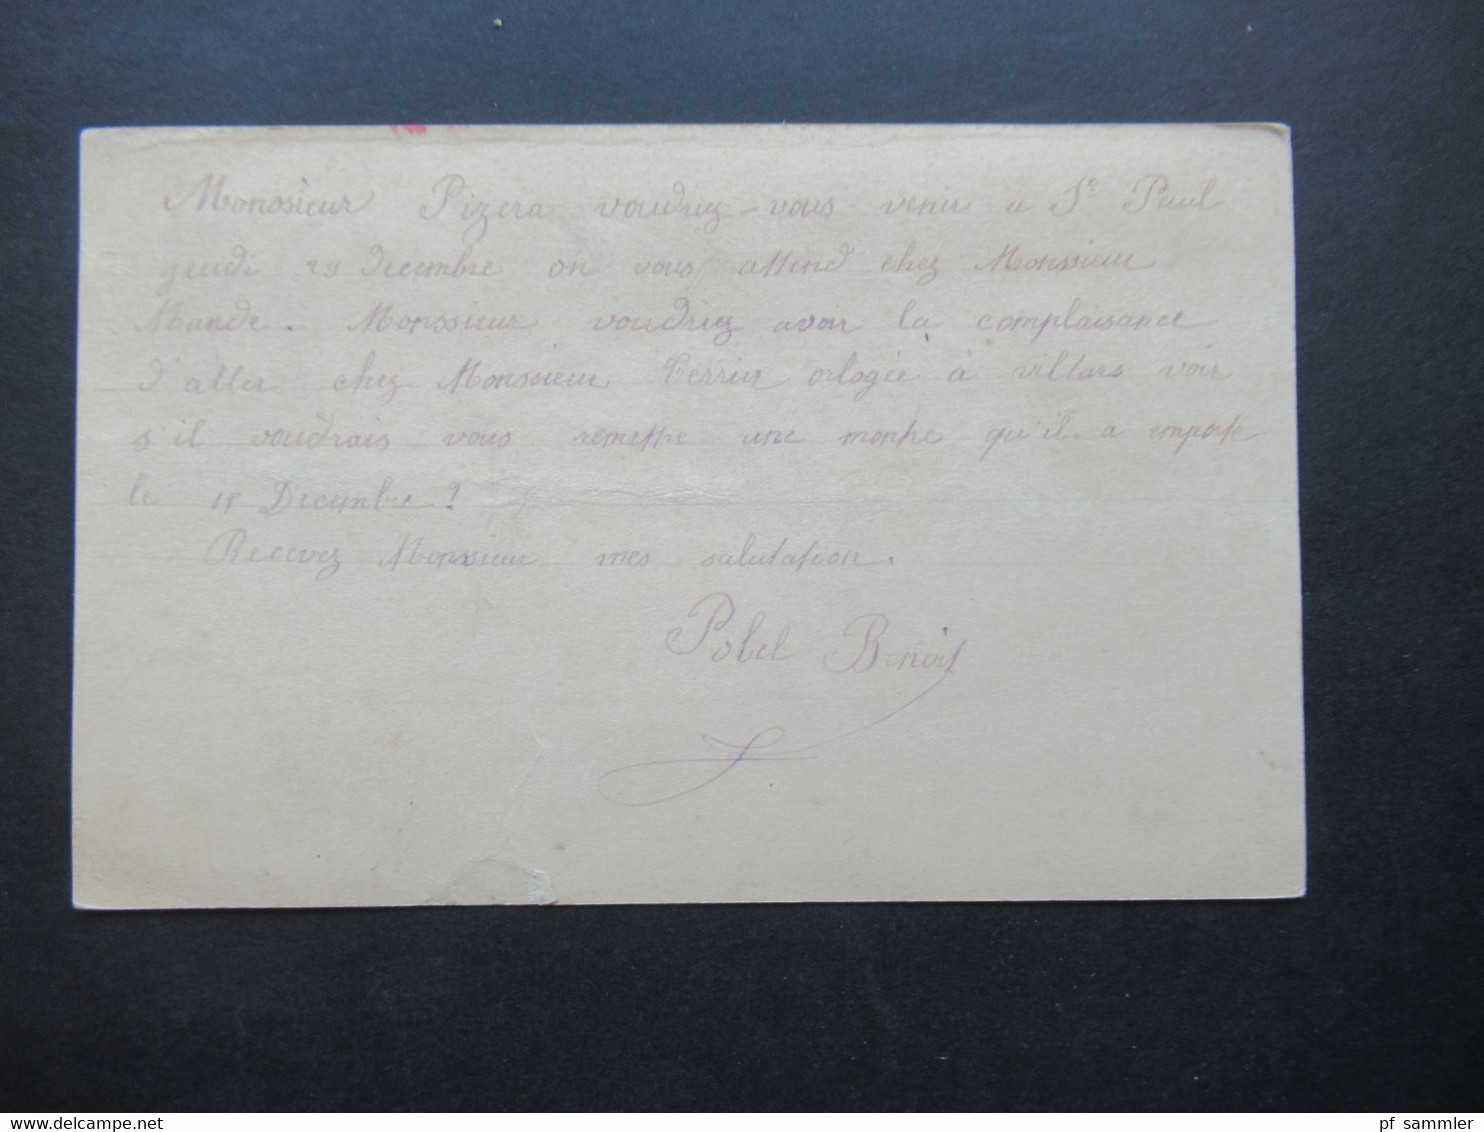 Monssieur Pizera voudriez-vous venir a St Paul
jeudi 28 decembre on vous attend chez Monssieur
Mande. Monssieur voudriez avoir la complaisance
d'aller chez Monssieur Terrier orlogée à villars voir
s'il voudrais vous remettre une monhe qu'il a emporte
le 18 Decembre?
Recevez Monssieur mes salutation.
Pobel Benoit
www.delcampe.net
pf_sammler